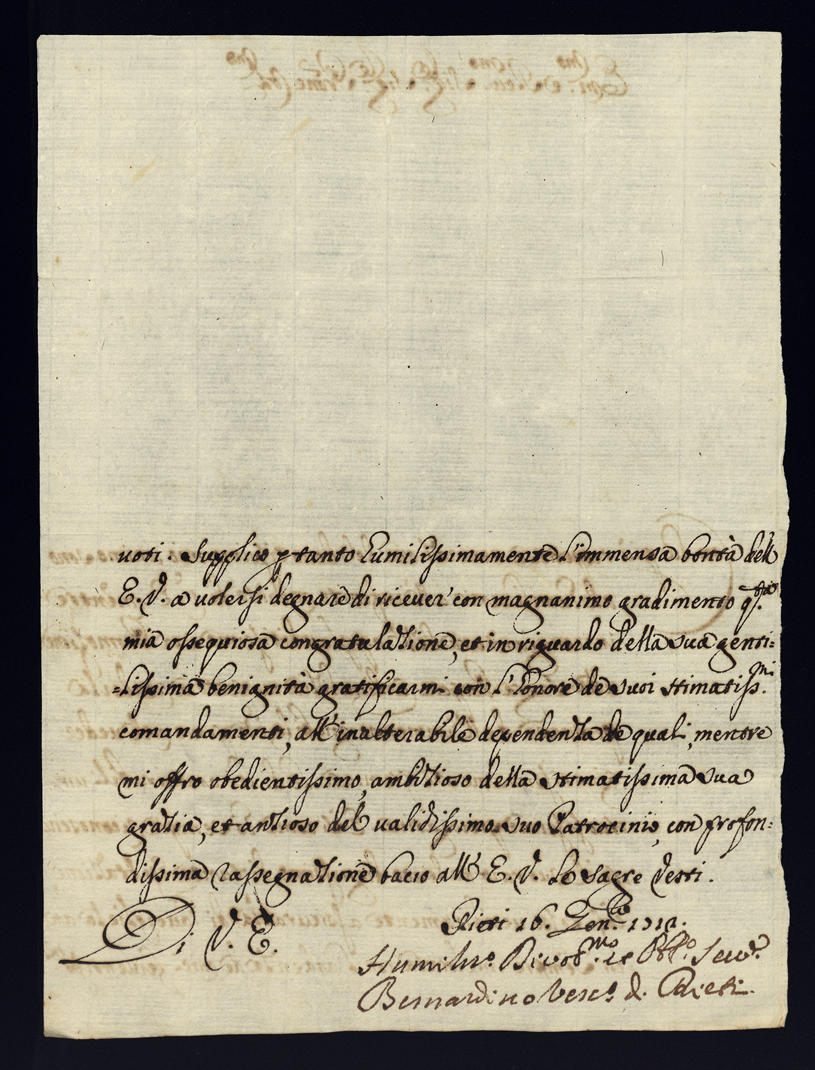 uoti. Supplico p tanto l'umilissimamente l'immensa bontà dell'
E. V. a volersi degnare di ricever con magnanimo gradimento q.sta
mia ossequiosa congratulazione, et in riguardo della sua genti=
=lissima benignità gratificarmi con l'honore de suoi stimatiss.mi
comandamenti, all'inalterabile dependenza de quali, mentre
mi offro obedientissimo, ambizioso della stimatissima sua
grazia, et anzioso del validissimo suo Patrocinio, con profon=
dissima rassegnazione bacio all'E. V. le sagre vesti.
Rieti 16. Gen.
Di V. E.
Humiliss.o Divot.mo et Obl.o Serv.e
Bernardino Vesc.o di Rieti